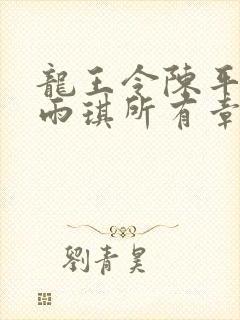 龍王令陳平
雨琪所有章
劉青昊